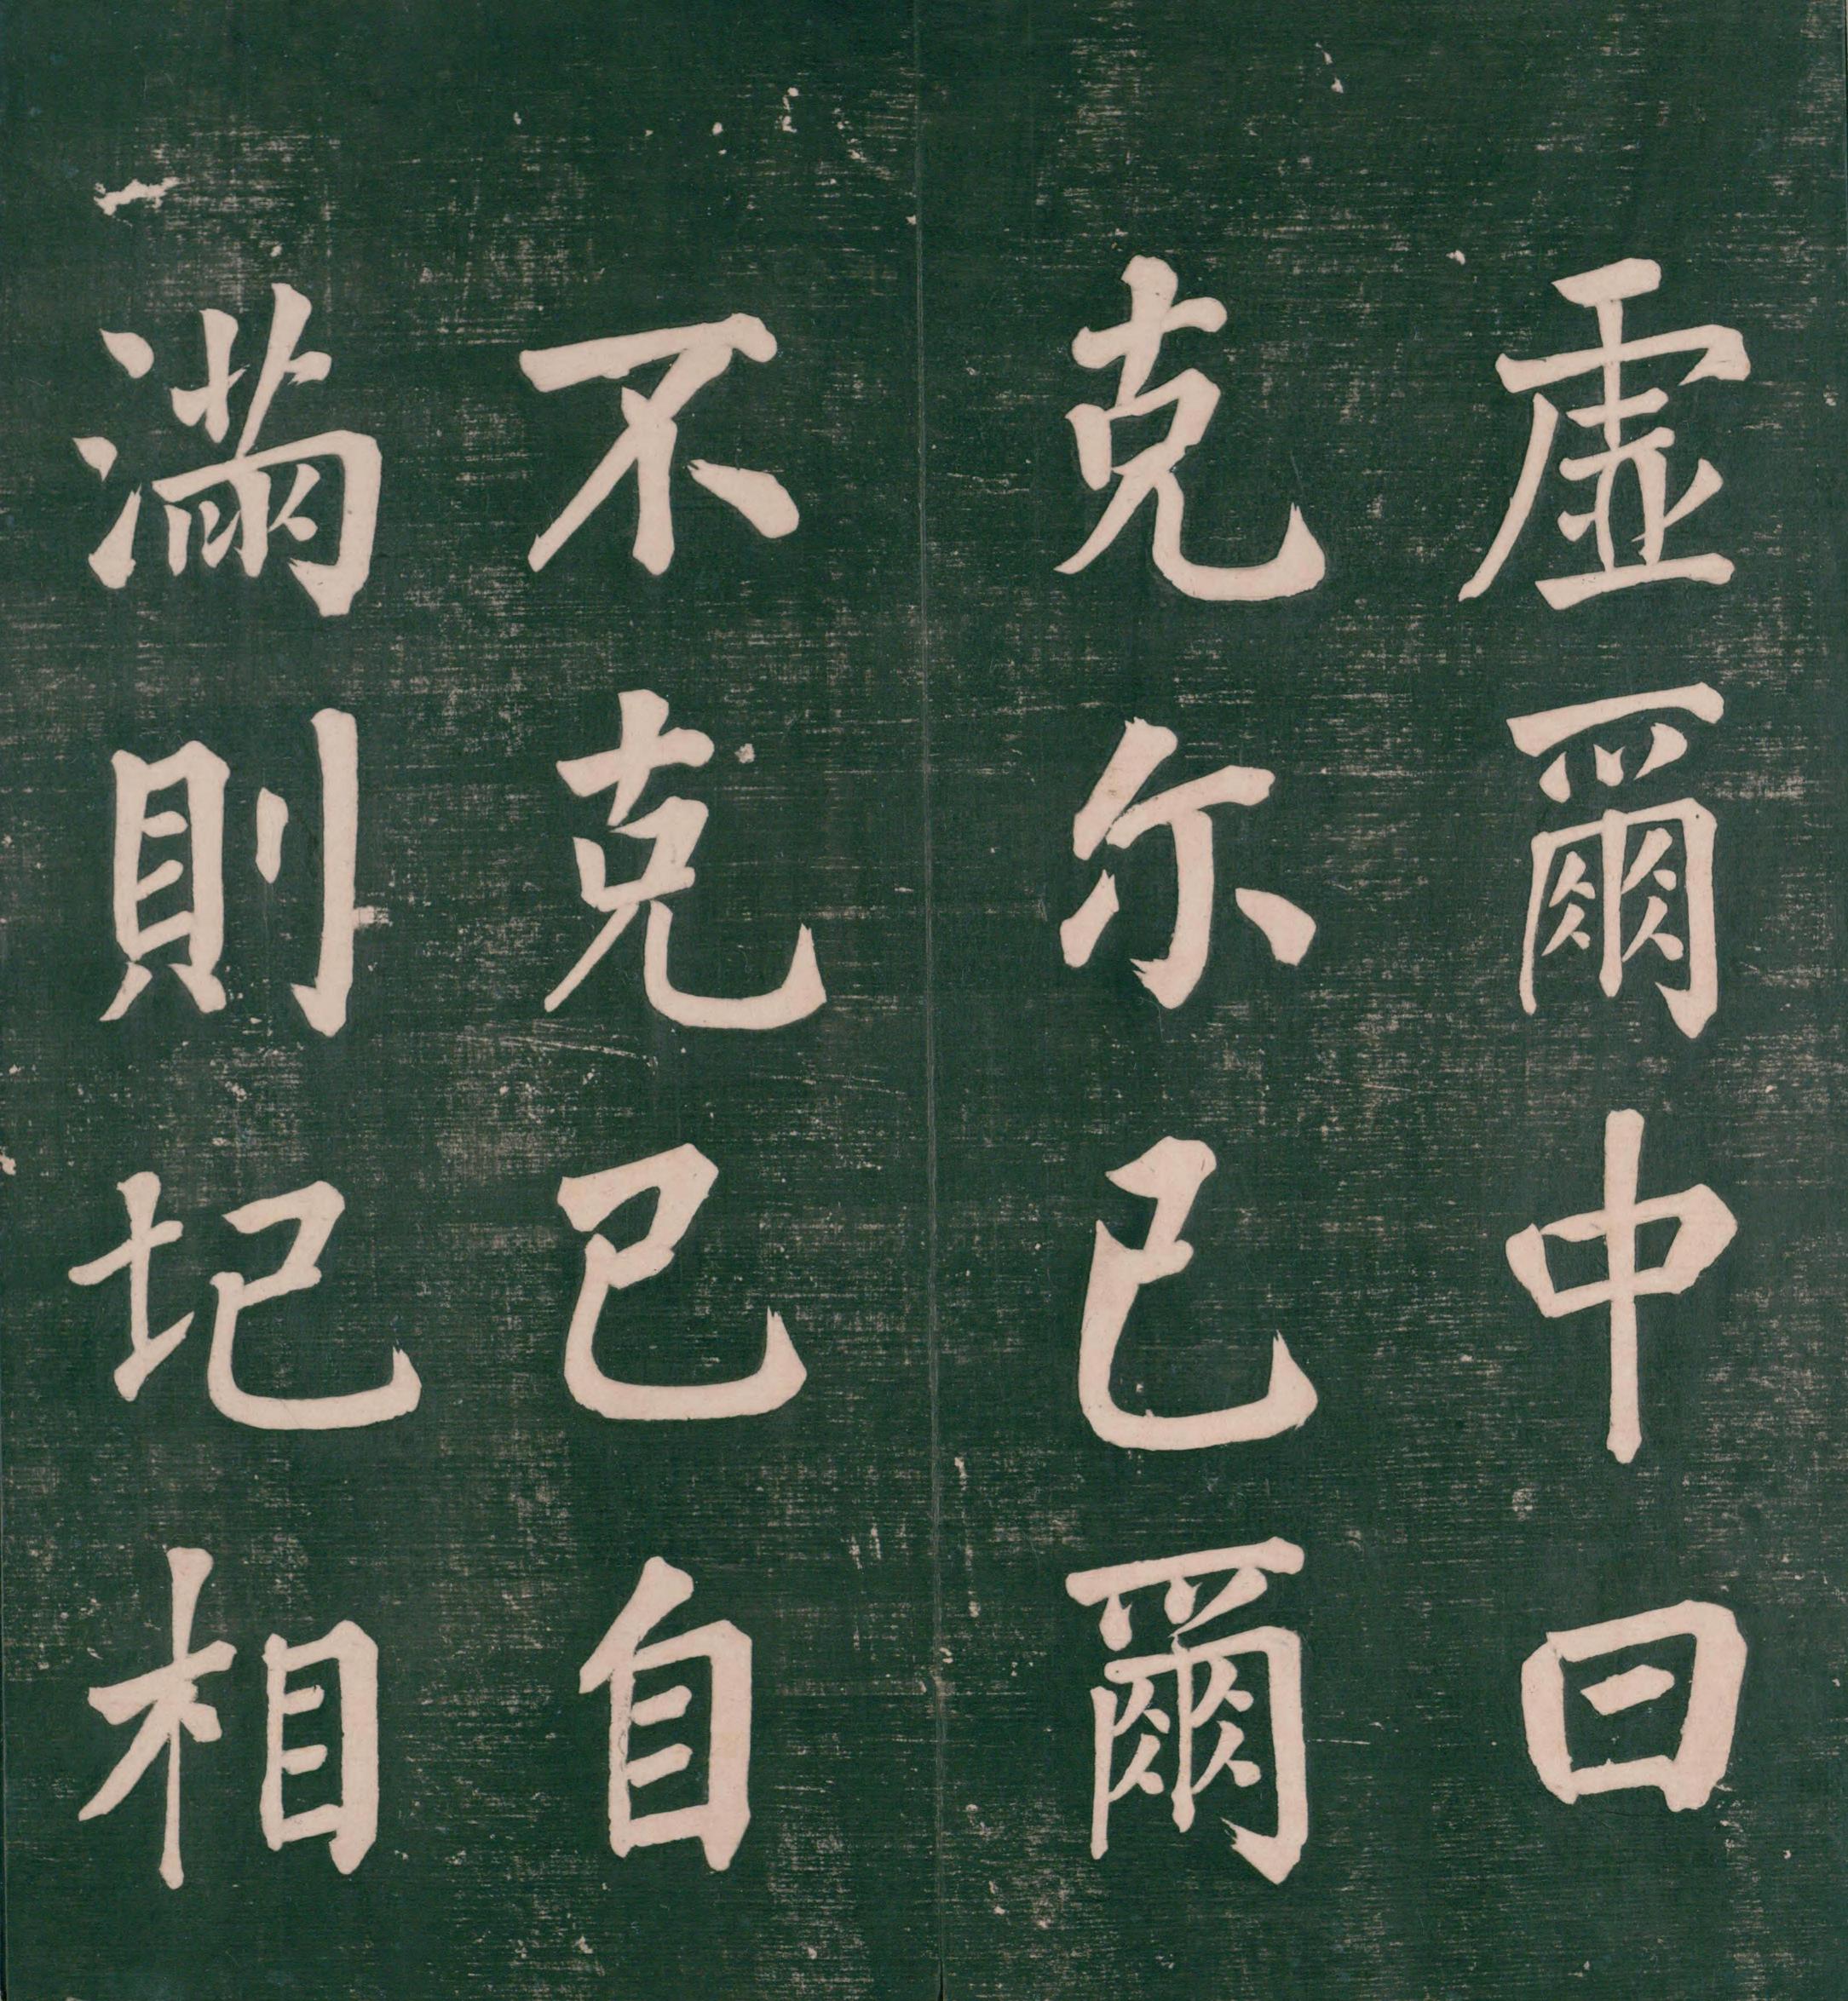 虛爾中曰
克尔己爾
不克己自
滿則圮相